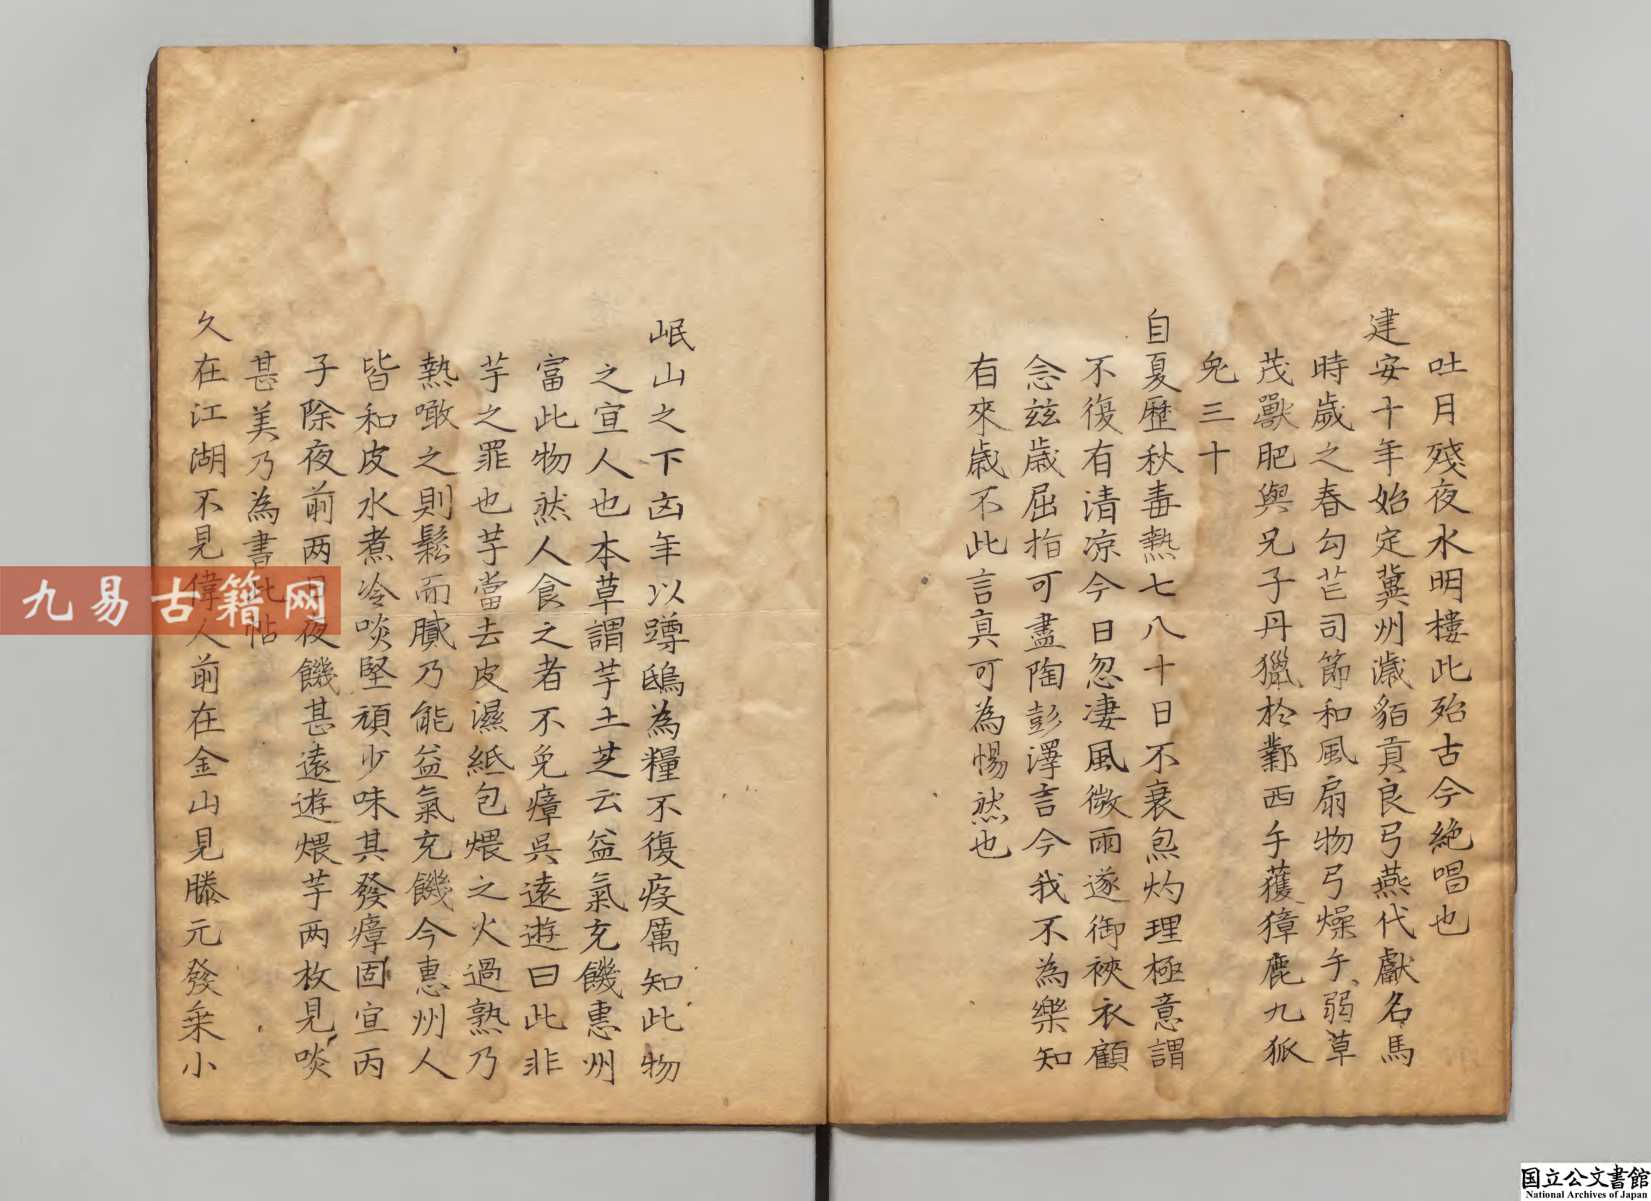 吐月殘夜水明樓此殆古今絶唱也
建安十年始定冀州濊貊貢良弓燕代獻名馬
時歲之春勾芒司節和風扇物弓燥手弱草
茂獸肥與兄子丹獵於鄴西手獲獐鹿九狐
兎三十
自夏歷秋毒熱七八十日不衰炰灼理極意謂
不復有清凉今日忽凄風微雨遂御裌衣顧
念兹歲屈指可盡陶彭澤言今我不為樂知
有來歲不此言真可為惕然也
岷山之下凶年以蹲鴟為糧不復疫厲知此物
之宣人也本草謂芋土芝云益氣充饑惠州
富此物然人食之者不免瘴吳遠遊曰此非
芋之罪也芋當去皮濕紙包煨之火過熟乃
熱噉之則鬆而膩乃能益氣充饑今惠州人
皆和皮水煮冷啖堅頑少味其發瘴固宣丙
子除夜前两日夜饑甚遠遊煨芋两枚見啖
甚美乃為書此帖
久在江湖不見偉人前在金山見滕元發乗小
九易古籍网
国立公文書館
National Archives of Japan